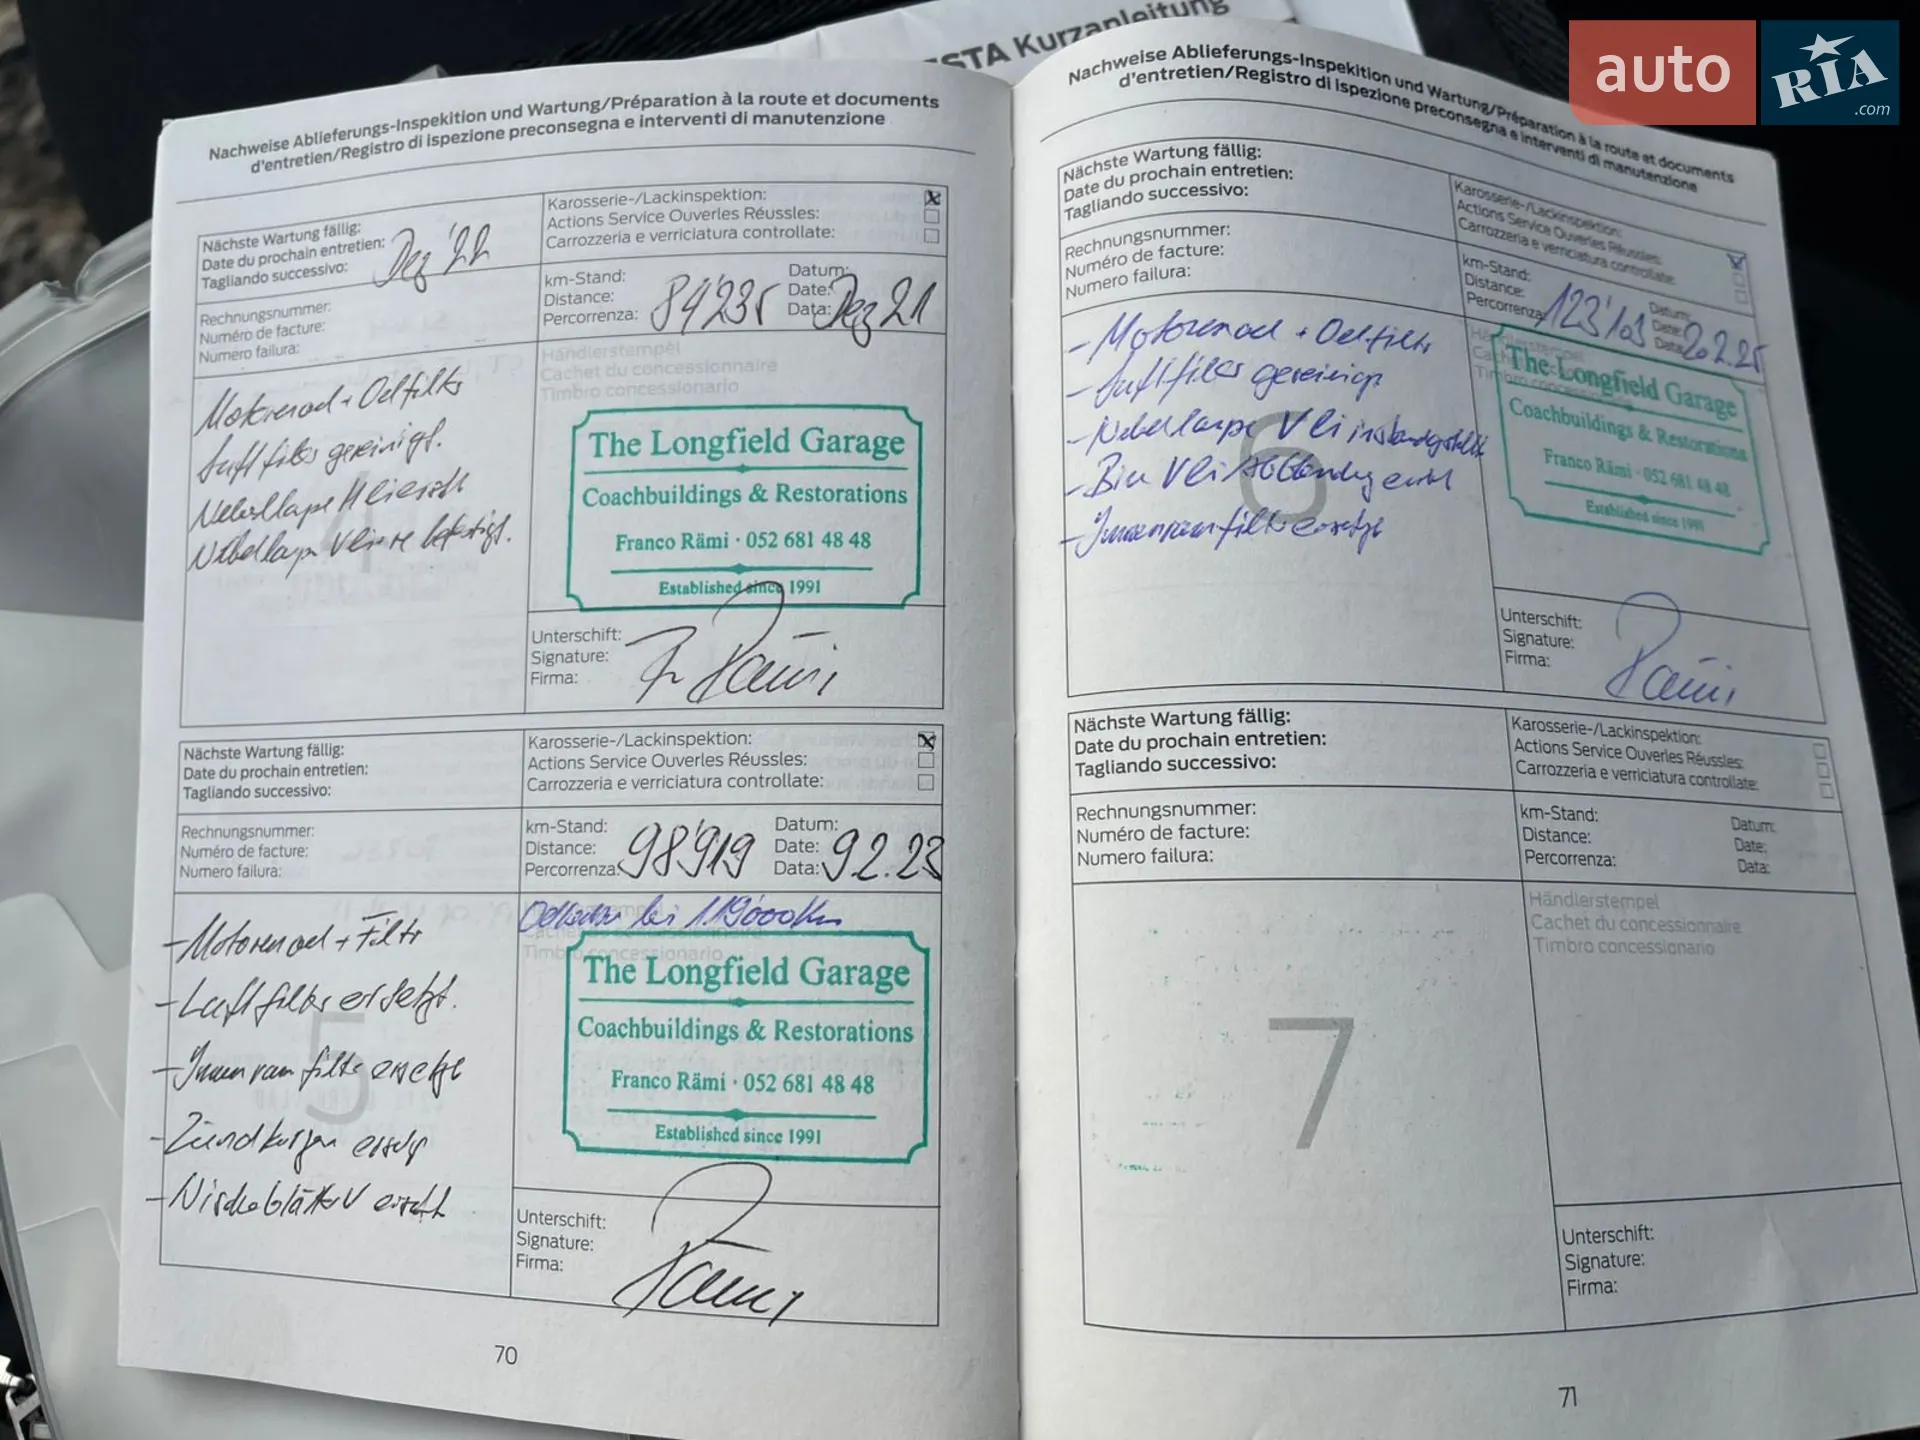 STA Kurzanleitung
auto
RIA
.com
Nachweise Ablieferungs-Inspektion und Wartung/Préparation à la route et documents
d'entretien/Registro di ispezione preconsegna e interventi di manutenzione
Nächste Wartung fällig:
Date du prochain entretien:
Tagliando successivo:
Dez '22
Karosserie-/Lackinspektion:
Actions Service Ouverles Réussles:
Carrozzeria e verriciatura controllate:
Rechnungsnummer:
Numéro de facture:
Numero failura:
km-Stand:
Distance:
Percorrenza:
84'235
Datum:
Date:
Data:
Dez 21
Händlerstempel
Cachet du concessionnaire
Timbro concessionario
Motorenoel + Oelfilter
Luftfilter gereinigt.
Nebellampe
Nebellampe
The Longfield Garage
Coachbuildings & Restorations
Franco Rämi · 052 681 48 48
Established since 1991
Unterschift:
Signature:
Firma:
F. Rämi
Nächste Wartung fällig:
Date du prochain entretien:
Tagliando successivo:
Karosserie-/Lackinspektion:
Actions Service Ouverles Réussles:
Carrozzeria e verriciatura controllate:
Rechnungsnummer:
Numéro de facture:
Numero failura:
km-Stand:
Distance:
Percorrenza:
98'919
Datum:
Date:
Data:
9.2.23
bei 119'000 Km
- Motorenoel + Filter
- Luftfilter ersetzt.
- Innenraumfilter ersetzt
- Zündkerzen ersetzt
- Wischerblätter V ersetzt
5
The Longfield Garage
Coachbuildings & Restorations
Franco Rämi · 052 681 48 48
Established since 1991
Unterschift:
Signature:
Firma:
Rämi
70
Nachweise Ablieferungs-Inspektion und Wartung/Préparation à la route et documents
d'entretien/Registro di ispezione preconsegna e interventi di manutenzione
Nächste Wartung fällig:
Date du prochain entretien:
Tagliando successivo:
Karosserie-/Lackinspektion:
Actions Service Ouverles Réussles:
Carrozzeria e verriciatura controllate:
Rechnungsnummer:
Numéro de facture:
Numero failura:
km-Stand:
Distance:
Percorrenza:
123'103
Datum:
Date:
Data:
20.2.25
- Motorenoel + Oelfilter
- Luftfilter gereinigt
- Nebellampe V li instandgestellt
- V li
- Innenraumfilter ersetzt
6
The Longfield Garage
Coachbuildings & Restorations
Franco Rämi · 052 681 48 48
Established since 1991
Unterschift:
Signature:
Firma:
Rämi
Nächste Wartung fällig:
Date du prochain entretien:
Tagliando successivo:
Karosserie-/Lackinspektion:
Actions Service Ouverles Réussles:
Carrozzeria e verriciatura controllate:
Rechnungsnummer:
Numéro de facture:
Numero failura:
km-Stand:
Distance:
Percorrenza:
Datum:
Date:
Data:
Händlerstempel
Cachet du concessionnaire
Timbro concessionario
7
Unterschift:
Signature:
Firma:
71